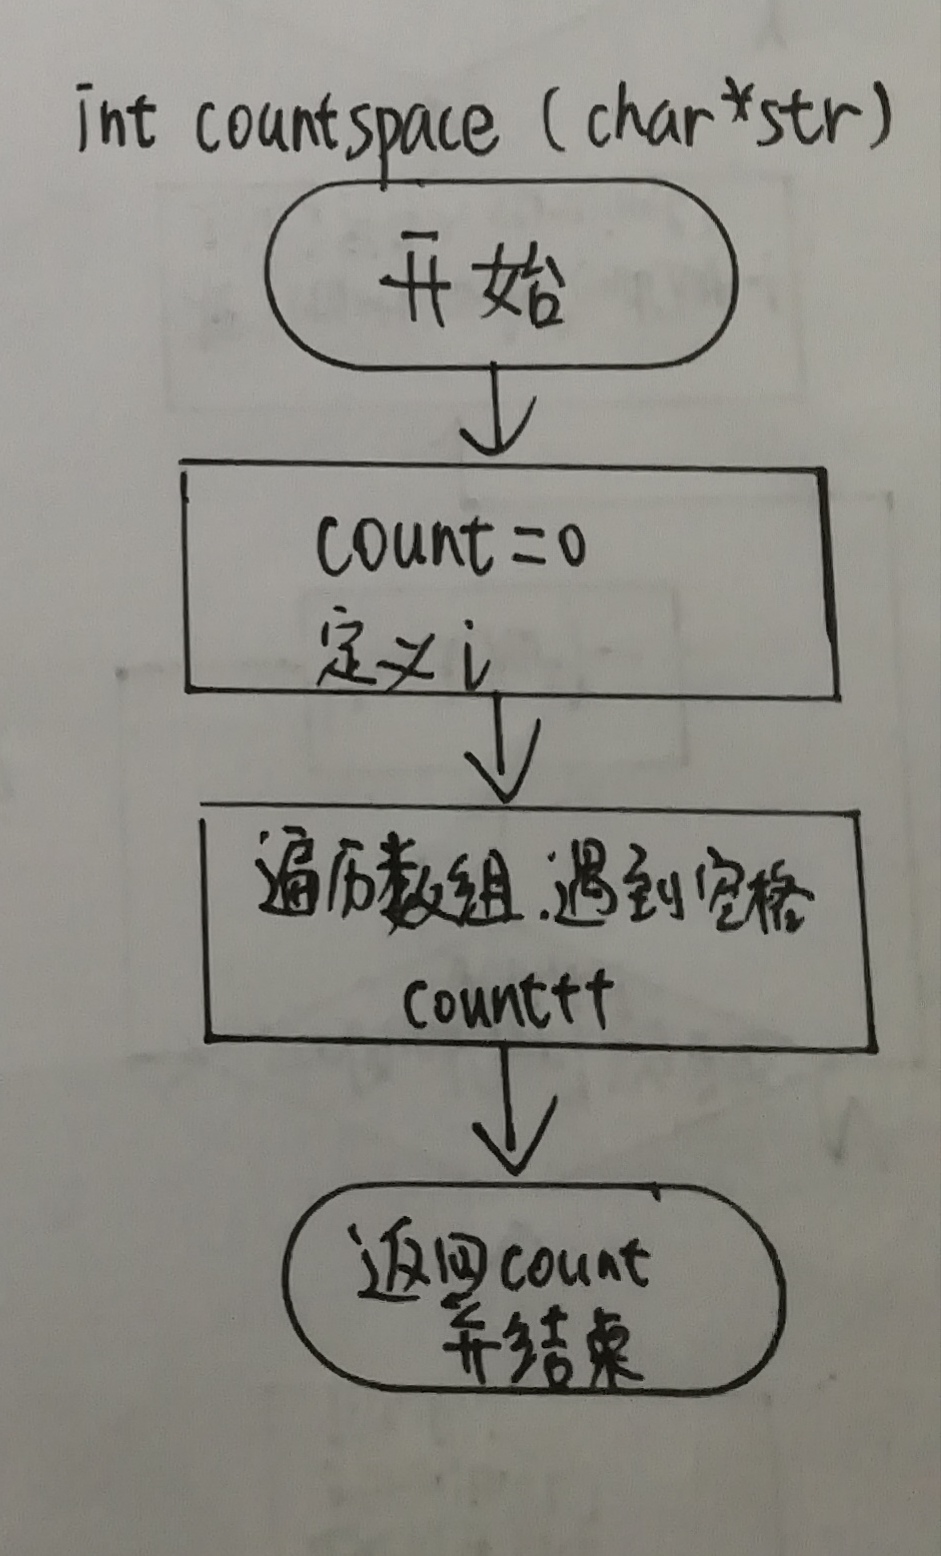 int countspace (char*str)
开始
count=0
定义i
遍历数组.遇到空格
count++
返回count
并结束